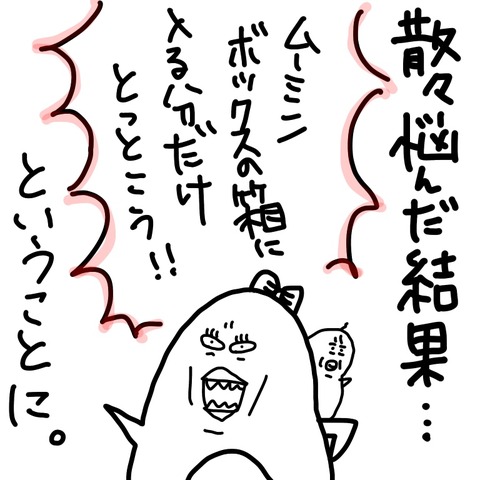 散々悩んだ結果…
ムーミン
ボックスの箱に
入る分だけ
とっとこう!!
ということに。